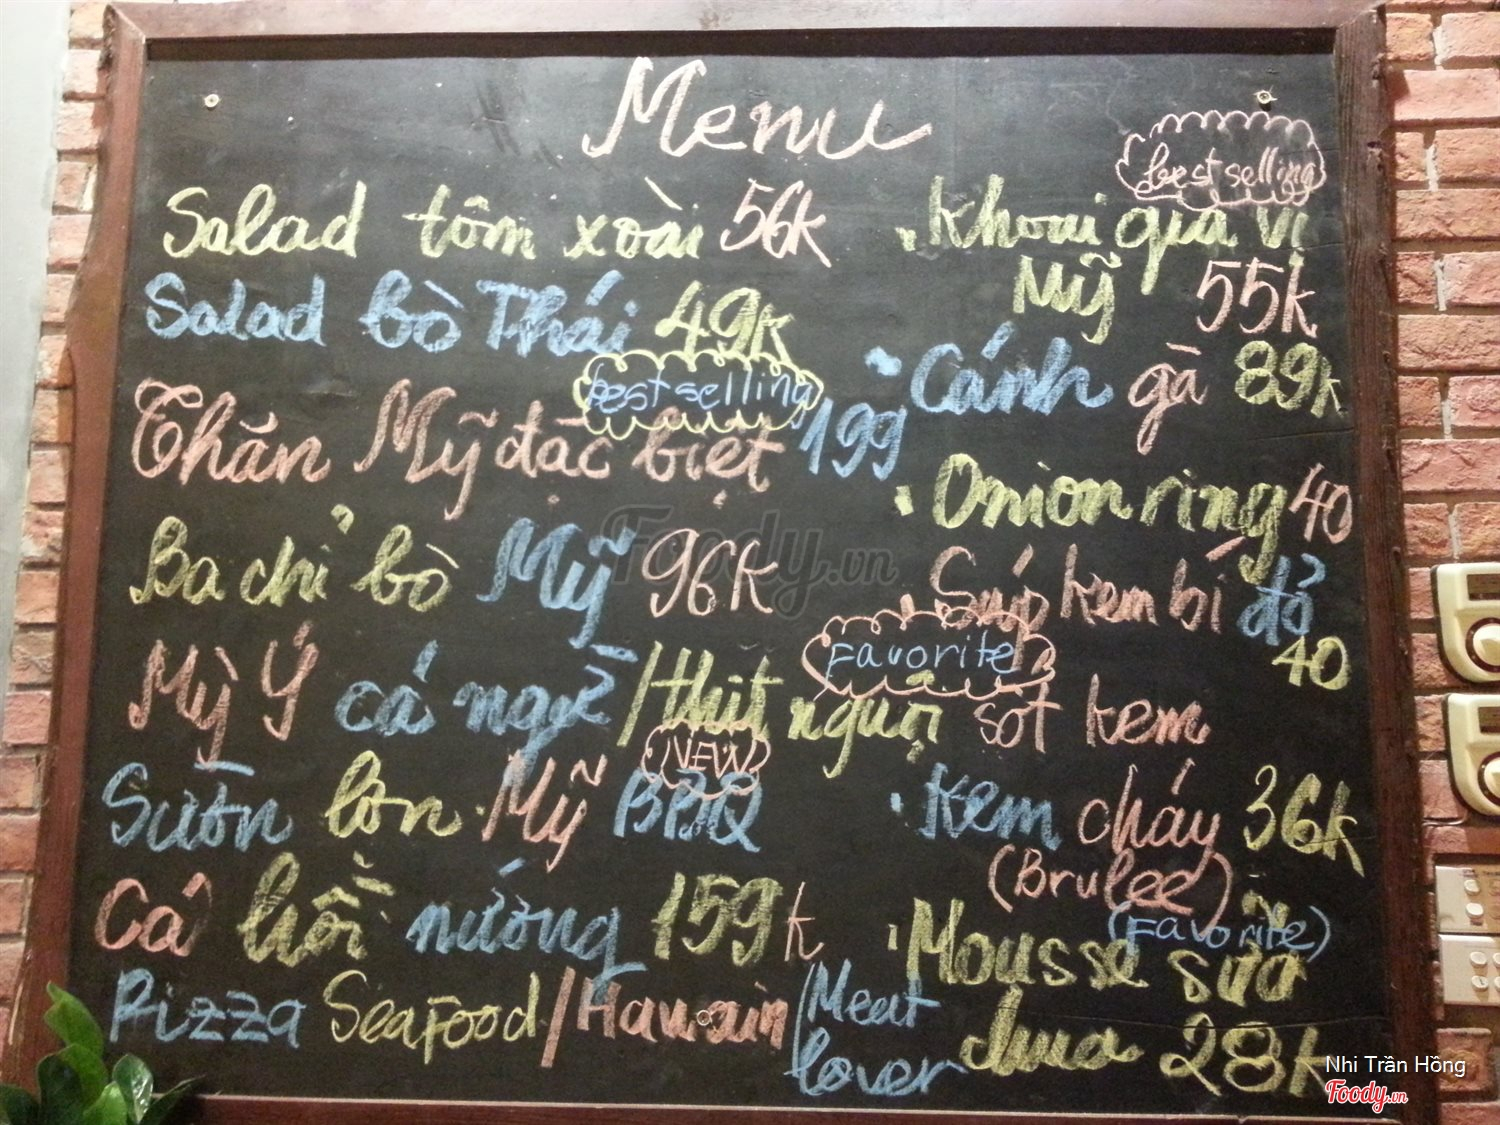 Menu
Salad tôm xoài 56k
Salad bò Thái 49k
best selling
Thăn Mỹ đặc biệt 199
Ba chỉ bò Mỹ 96k
Mỳ Ý cá ngừ / thịt nguội sốt kem
Favorite
NEW
Sườn lợn Mỹ BBQ
Cá hồi nướng 159k
Pizza Seafood / Hawain / Meat
lover
best selling
Khoai gia vị
Mỹ 55k
Cánh gà 89k
Onion ring 40
Súp kem bí đỏ
40
Kem cháy 36k
(Brulee)
(Favorite)
Mousse sữa
chua 28k
Foody.vn
Nhi Trần Hồng
Foody.vn